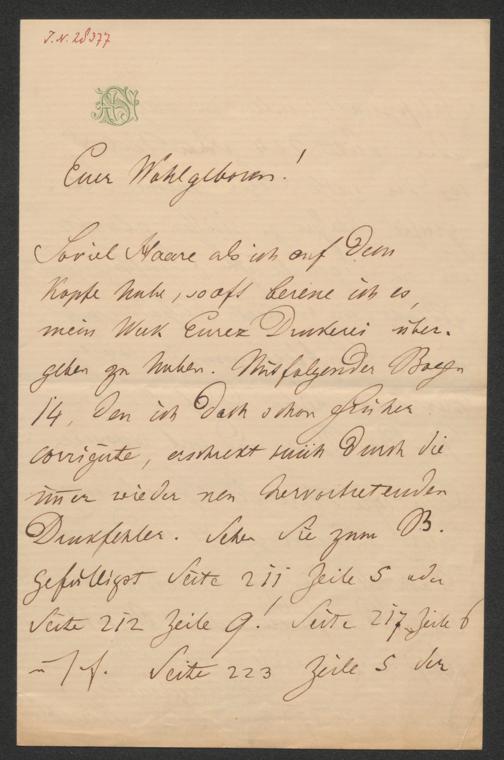 J. N. 28377
Euer Wohlgeboren!
Soviel Haare als ich auf dem
Kopfe habe, so oft bereue ich es,
mein Werk Eurer Drukerei über-
geben zu haben. Mitfolgender Bogen
14, den ich doch schon früher
corrigirte, erschrekt mich durch die
immer wieder neu hervortretenden
Drukfehler. Sehen Sie zum B.
gefälligst Seite 211 Zeile 5 oder
Seite 212 Zeile 9! Seite 217 Zeile 6
Seite 223 Zeile 5 der